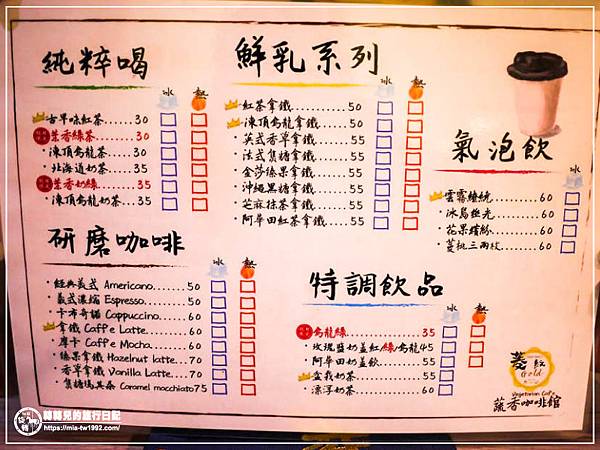 純粹喝
冰 熱
古早味紅茶......30
茉香綠茶........30
凍頂烏龍茶....30
北海道奶茶....35
茉香奶綠........35
凍頂烏龍奶茶...35
鮮乳系列
冰 熱
紅茶拿鐵............50
凍頂烏龍拿鐵......50
英式香草拿鐵......55
法式焦糖拿鐵......55
金莎榛果拿鐵......55
沖繩黑糖拿鐵......55
芝麻抹茶拿鐵......55
阿華田紅茶拿鐵...55
氣泡飲
冰
雲霧繚繞..........60
冰島極光..........60
花果繽紛..........60
菱桃三兩枝.......60
研磨咖啡
冰 熱
經典義式 Americano........50
義式濃縮 Espresso..........50
卡布奇諾 Cappuccino.......60
拿鐵 Caffe Latte...............60
摩卡 Caffe Mocha............60
榛果拿鐵 Hazelnut latte...70
香草拿鐵 Vanilla Latte.....70
焦糖瑪其朵 Caramel macchiato75
特調飲品
冰 熱
烏龍綠..................35
玫瑰鹽奶蓋紅/綠/烏龍45
阿華田奶蓋飲.........55
盆栽奶茶...............55
漂浮奶茶...............60
菱紋
Gold
Vegetarian Cafe
蔬香咖啡館
轉轉兒的旅行日記
https://mia-tw1992.com/